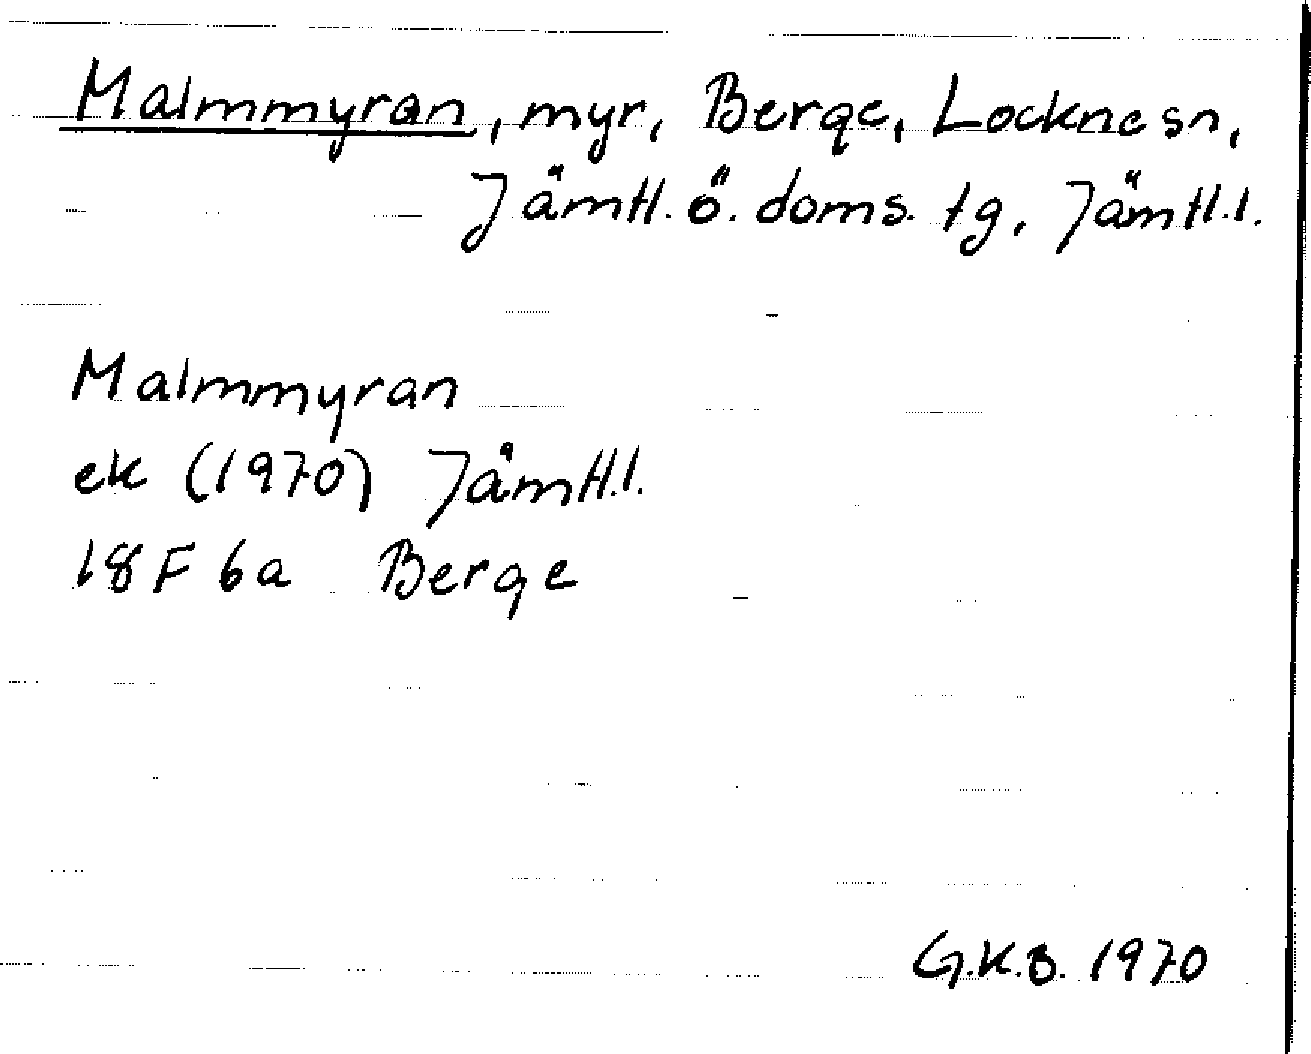 Malmmyran, myr, Berge, Locknesn,
Jämtl. ö. doms. tg, Jämtl.l.
Malmmyran
ek (1970) Jämtl.l.
18F 6a Berge
G.K.B. 1970